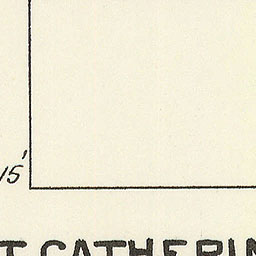 15'
T CATHERIN